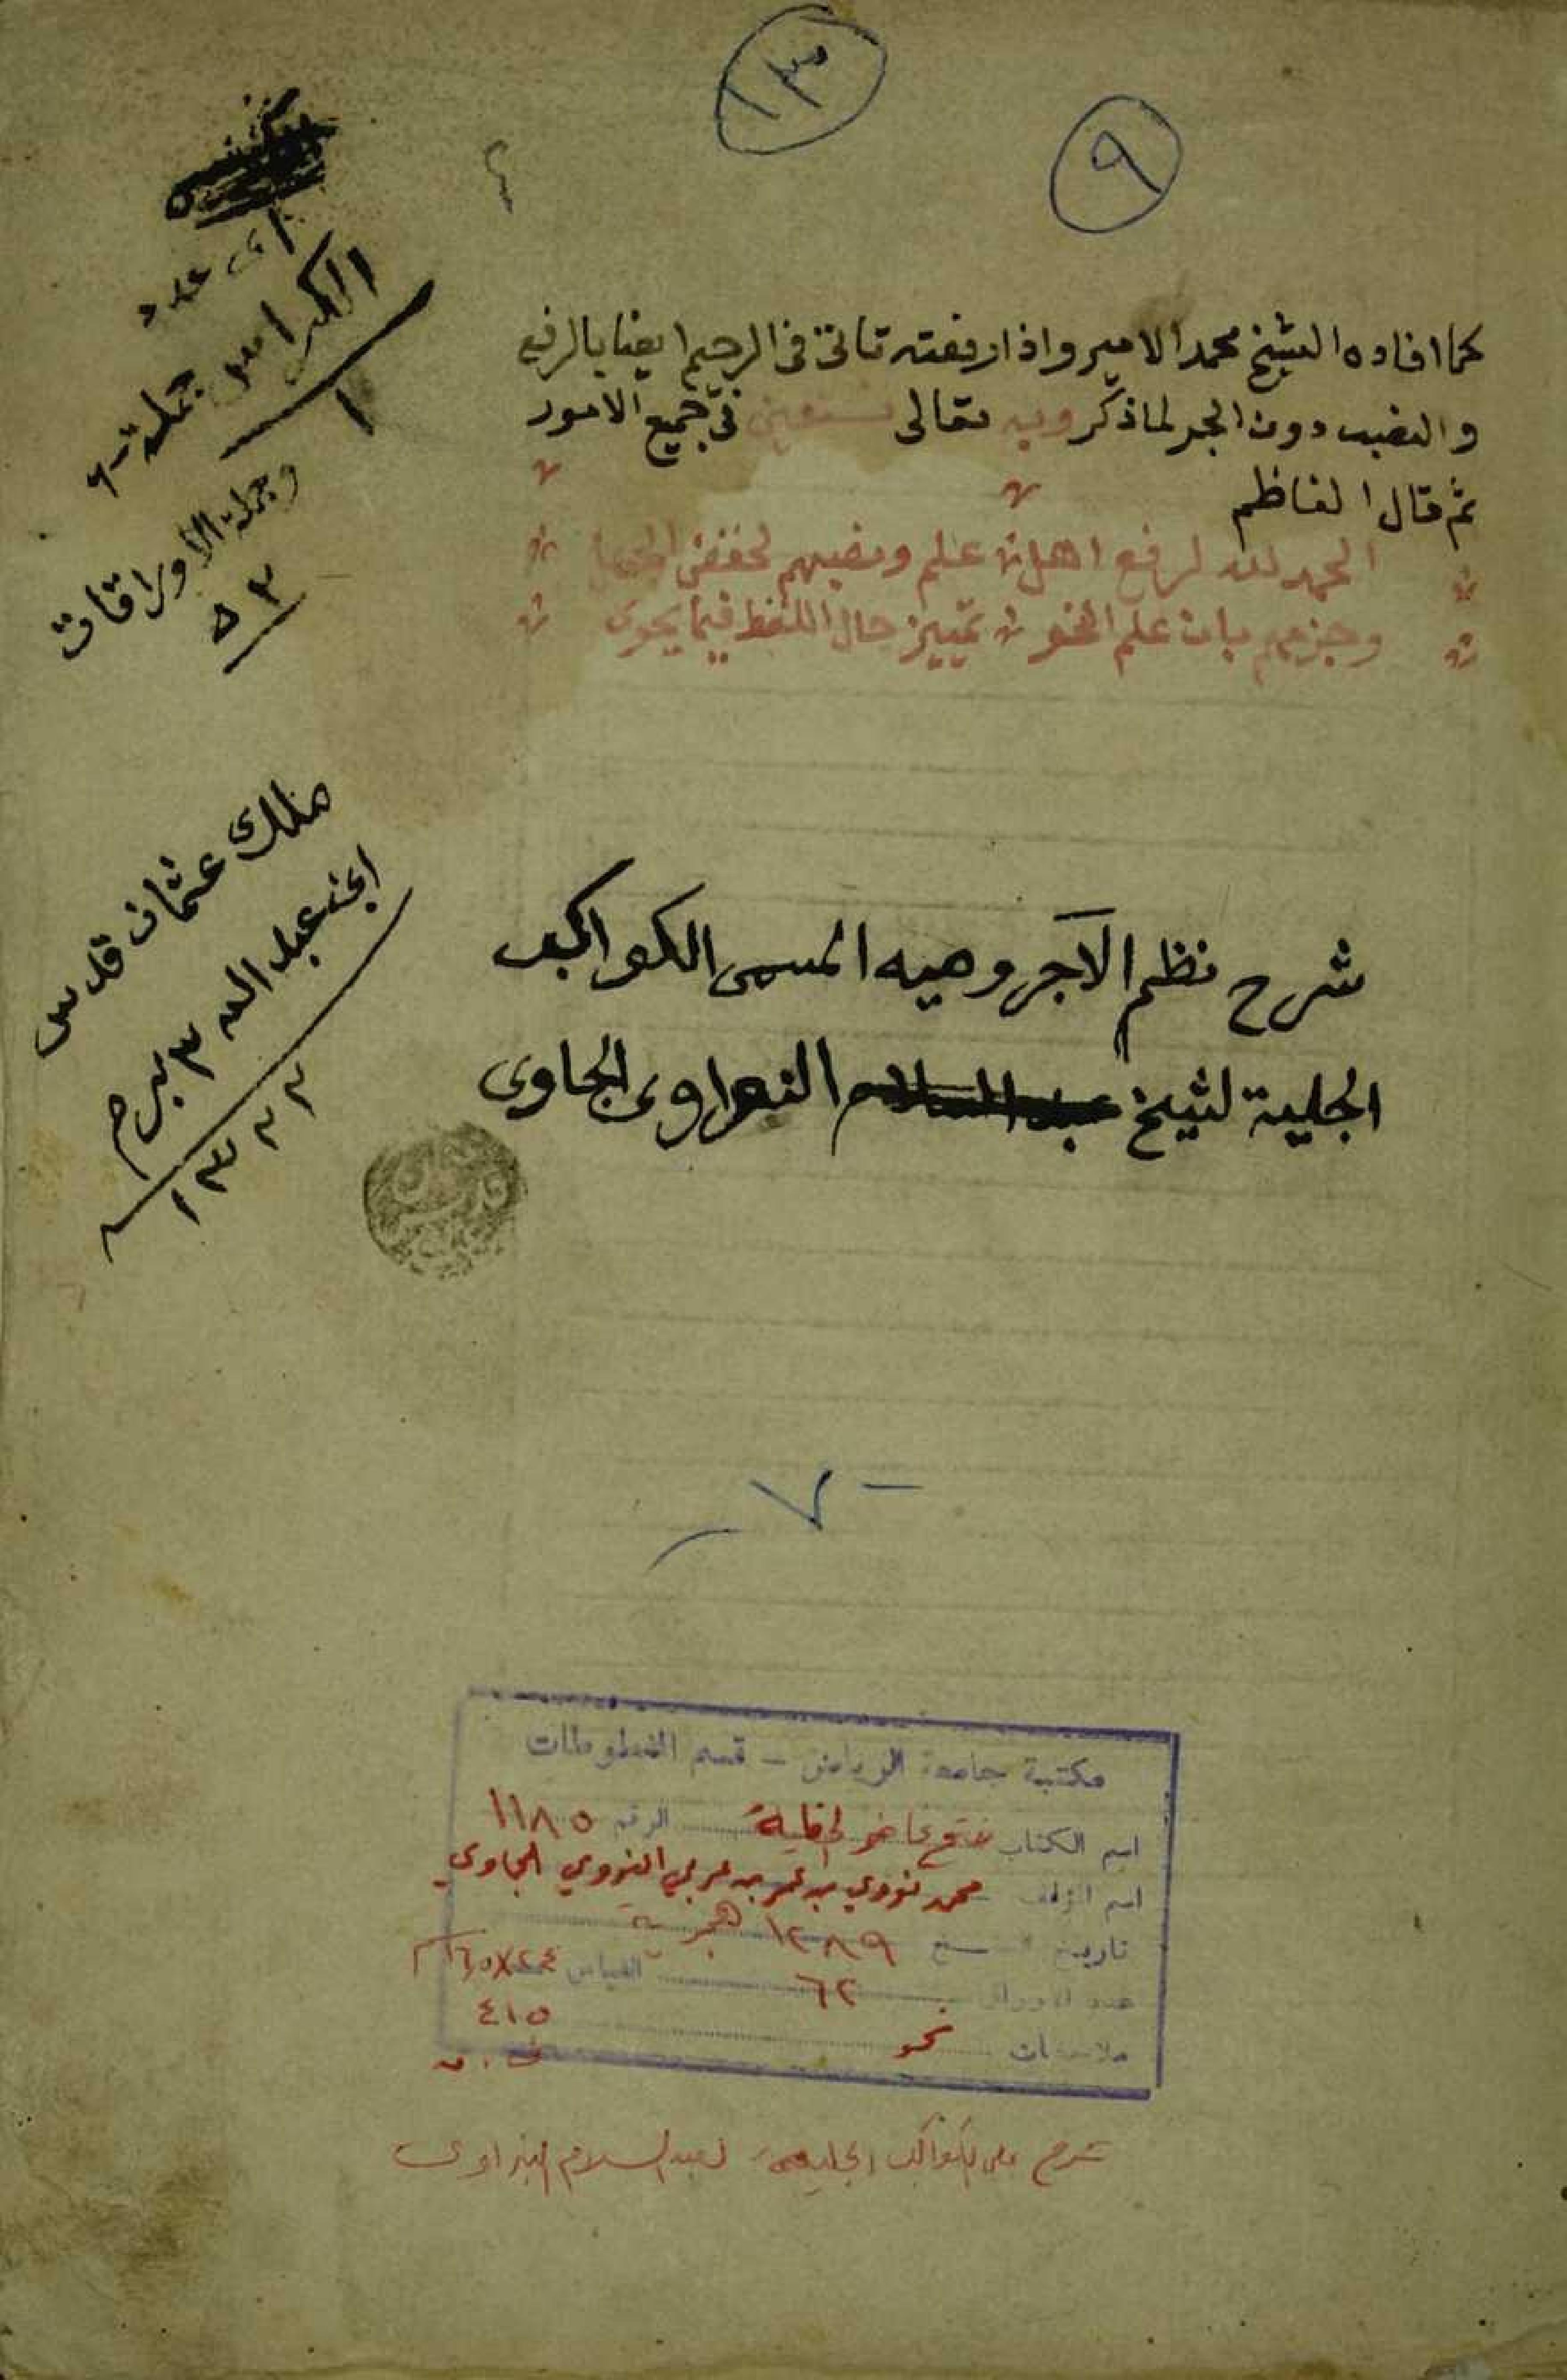 ١٣
٩
كما افاده الشيخ محمد الامير واذا رفعته تاتى فى الرحيم ايضا بالرفع
والنصب دون الجر لما ذكر وبه تعالى نستعين فى جميع الامور
ثم قال الناظم
الحمد لله لرفع اهل علم ونصبهم لخفض
وجزمهم بان علم النحو تمييز حال اللفظ فيما يحوى
الكراس جملة ٦
١
وجملة الاوراقات
٥٣
ملك عثمان قدس
ابن عبد الله
١٣٣٣
شرح نظم الآجروميه المسمى الكواكب
الجلية لشيخ عبد السلام النواوى الجاوى
٧
مكتبة جامعة الرياض - قسم المخطوطات
اسم الكتاب فتح غافر الخطية الرقم ١١٨٥
اسم المؤلف محمد نووي بن عمر بن عربي النووي الجاوي
تاريخ النسخ ١٢٨٩ هجرية
عدد الاوراق ٦٢ القياس
ملاحظات نحو ٤١٥
شرح على الكواكب الجلية لعبد السلام النبراوى